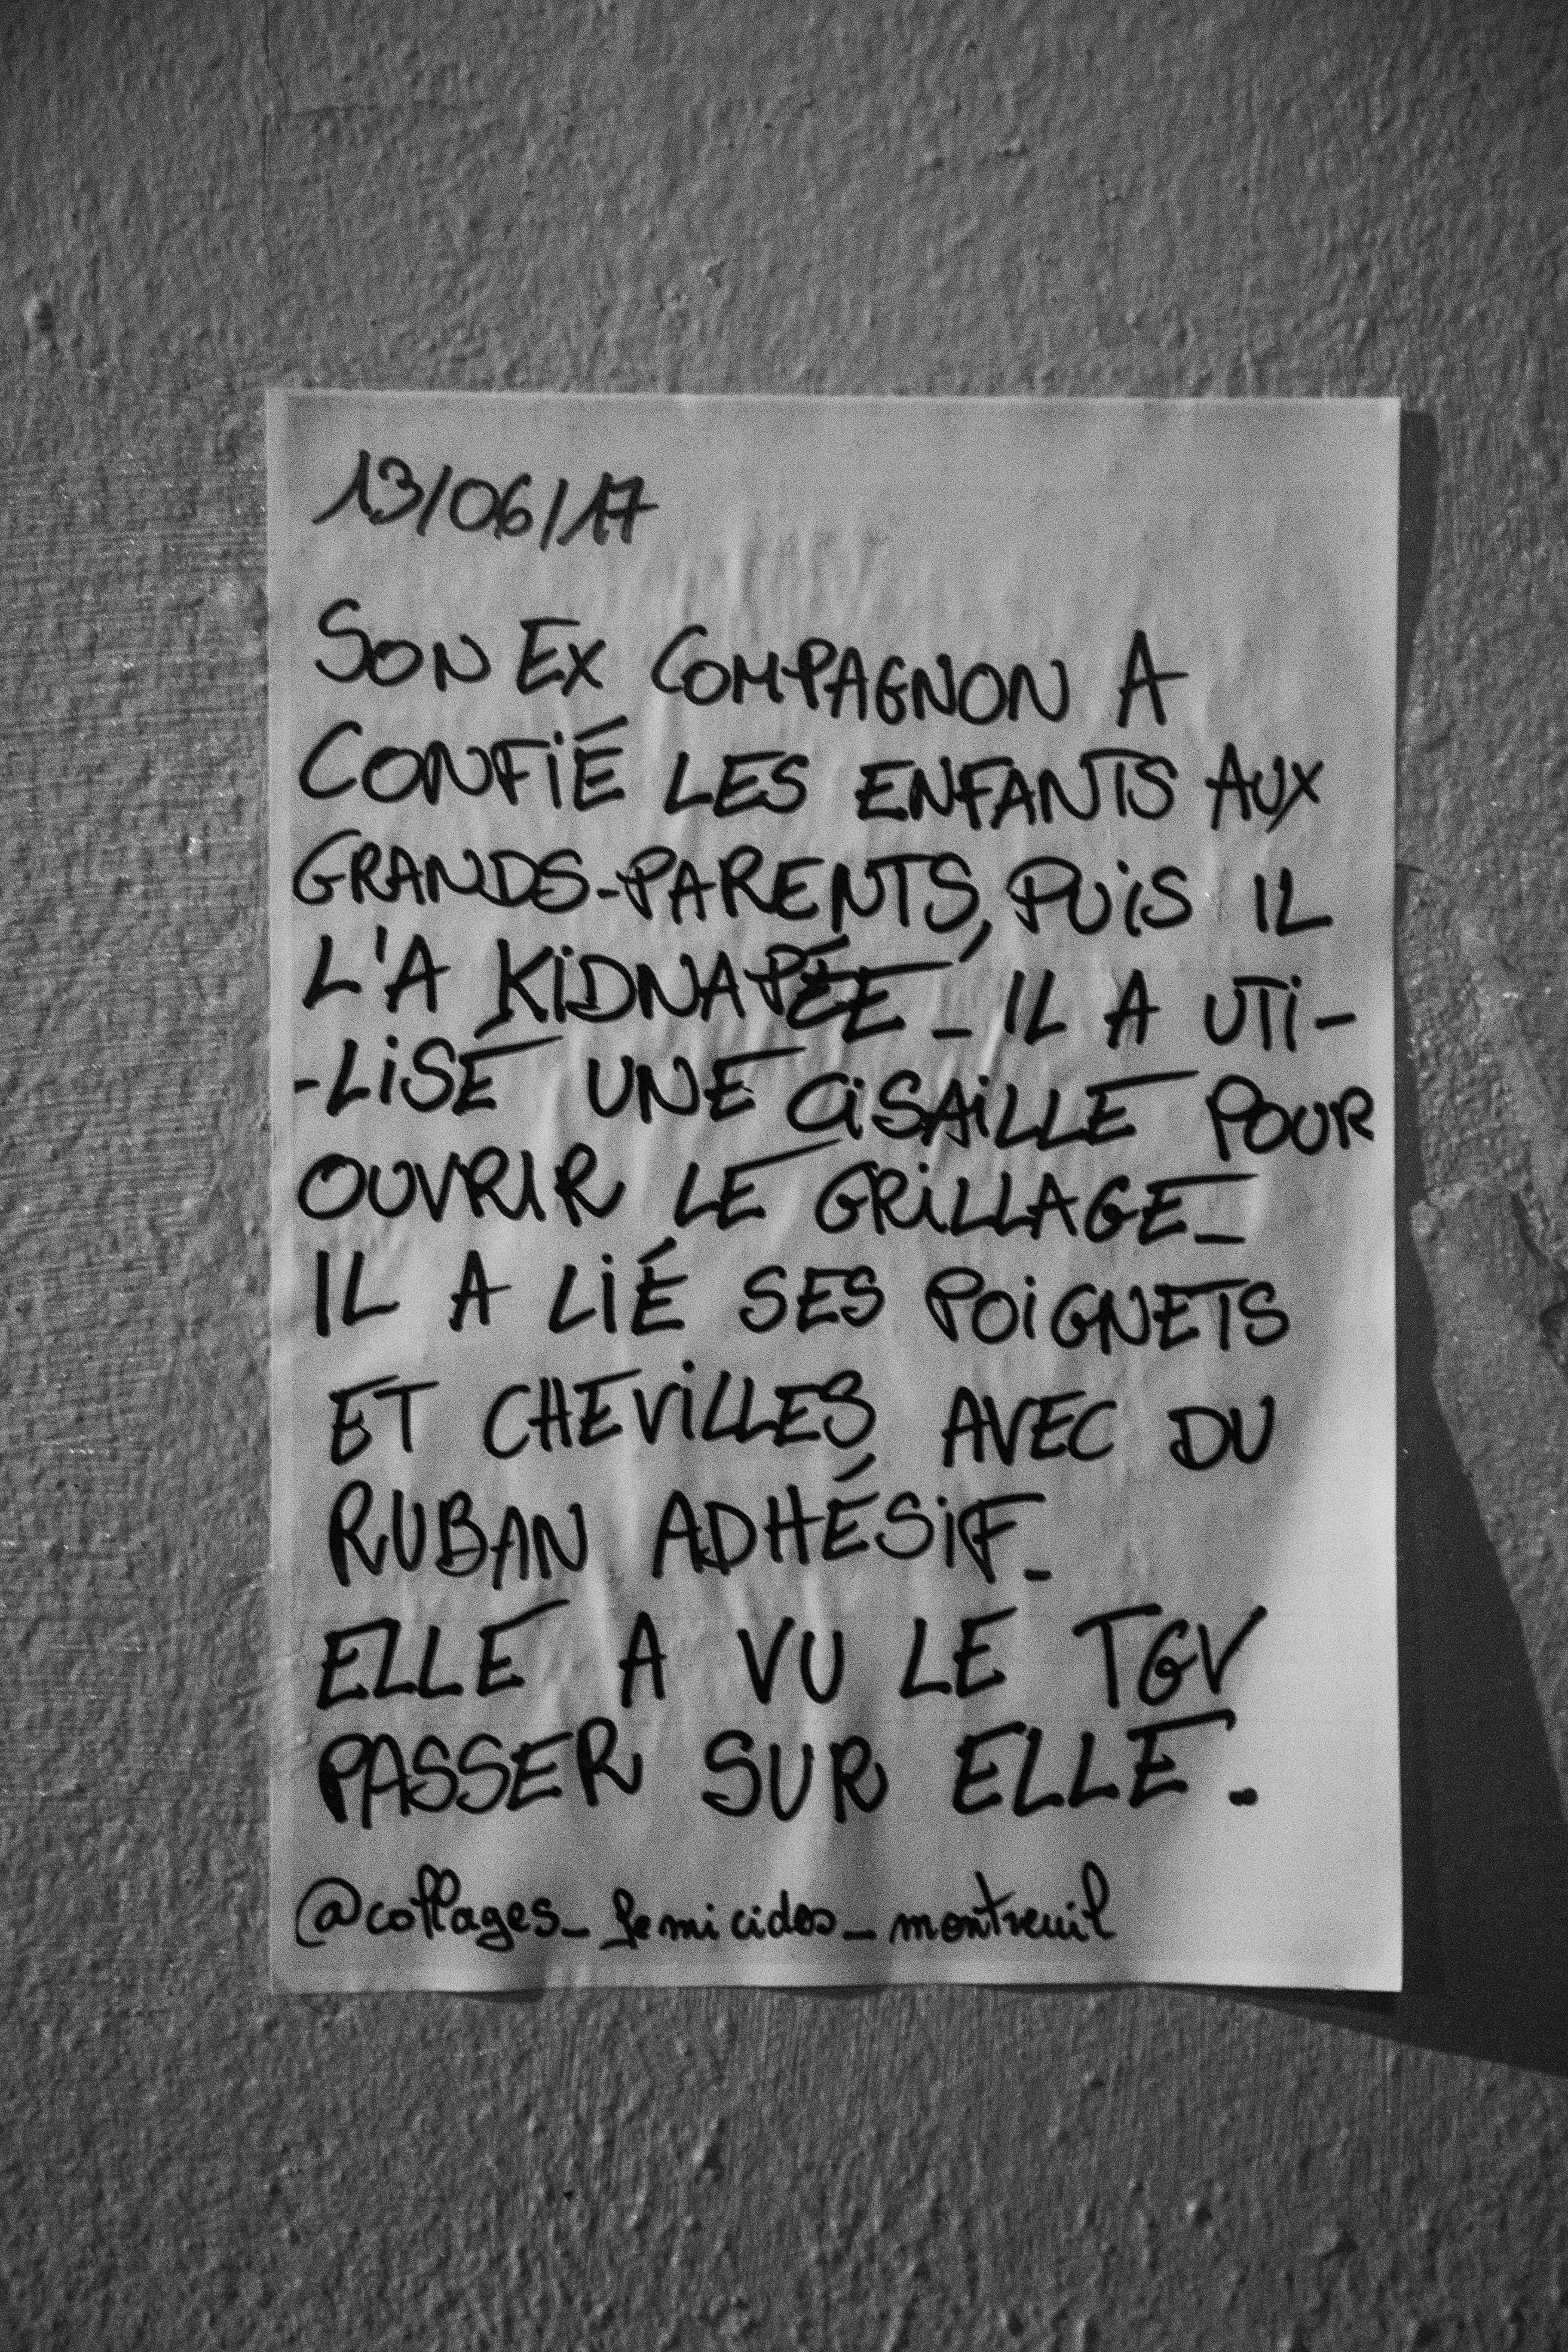 13/06/17
SON EX COMPAGNON A
CONFIÉ LES ENFANTS AUX
GRANDS-PARENTS, PUIS IL
L'A KIDNAPÉE_ IL A UTI-
-LISÉ UNE CISAILLE POUR
OUVRIR LE GRILLAGE_
IL A LIÉ SES POIGNETS
ET CHEVILLES AVEC DU
RUBAN ADHÉSIF_
ELLE A VU LE TGV
PASSER SUR ELLE.
@collages_femicides_montreuil